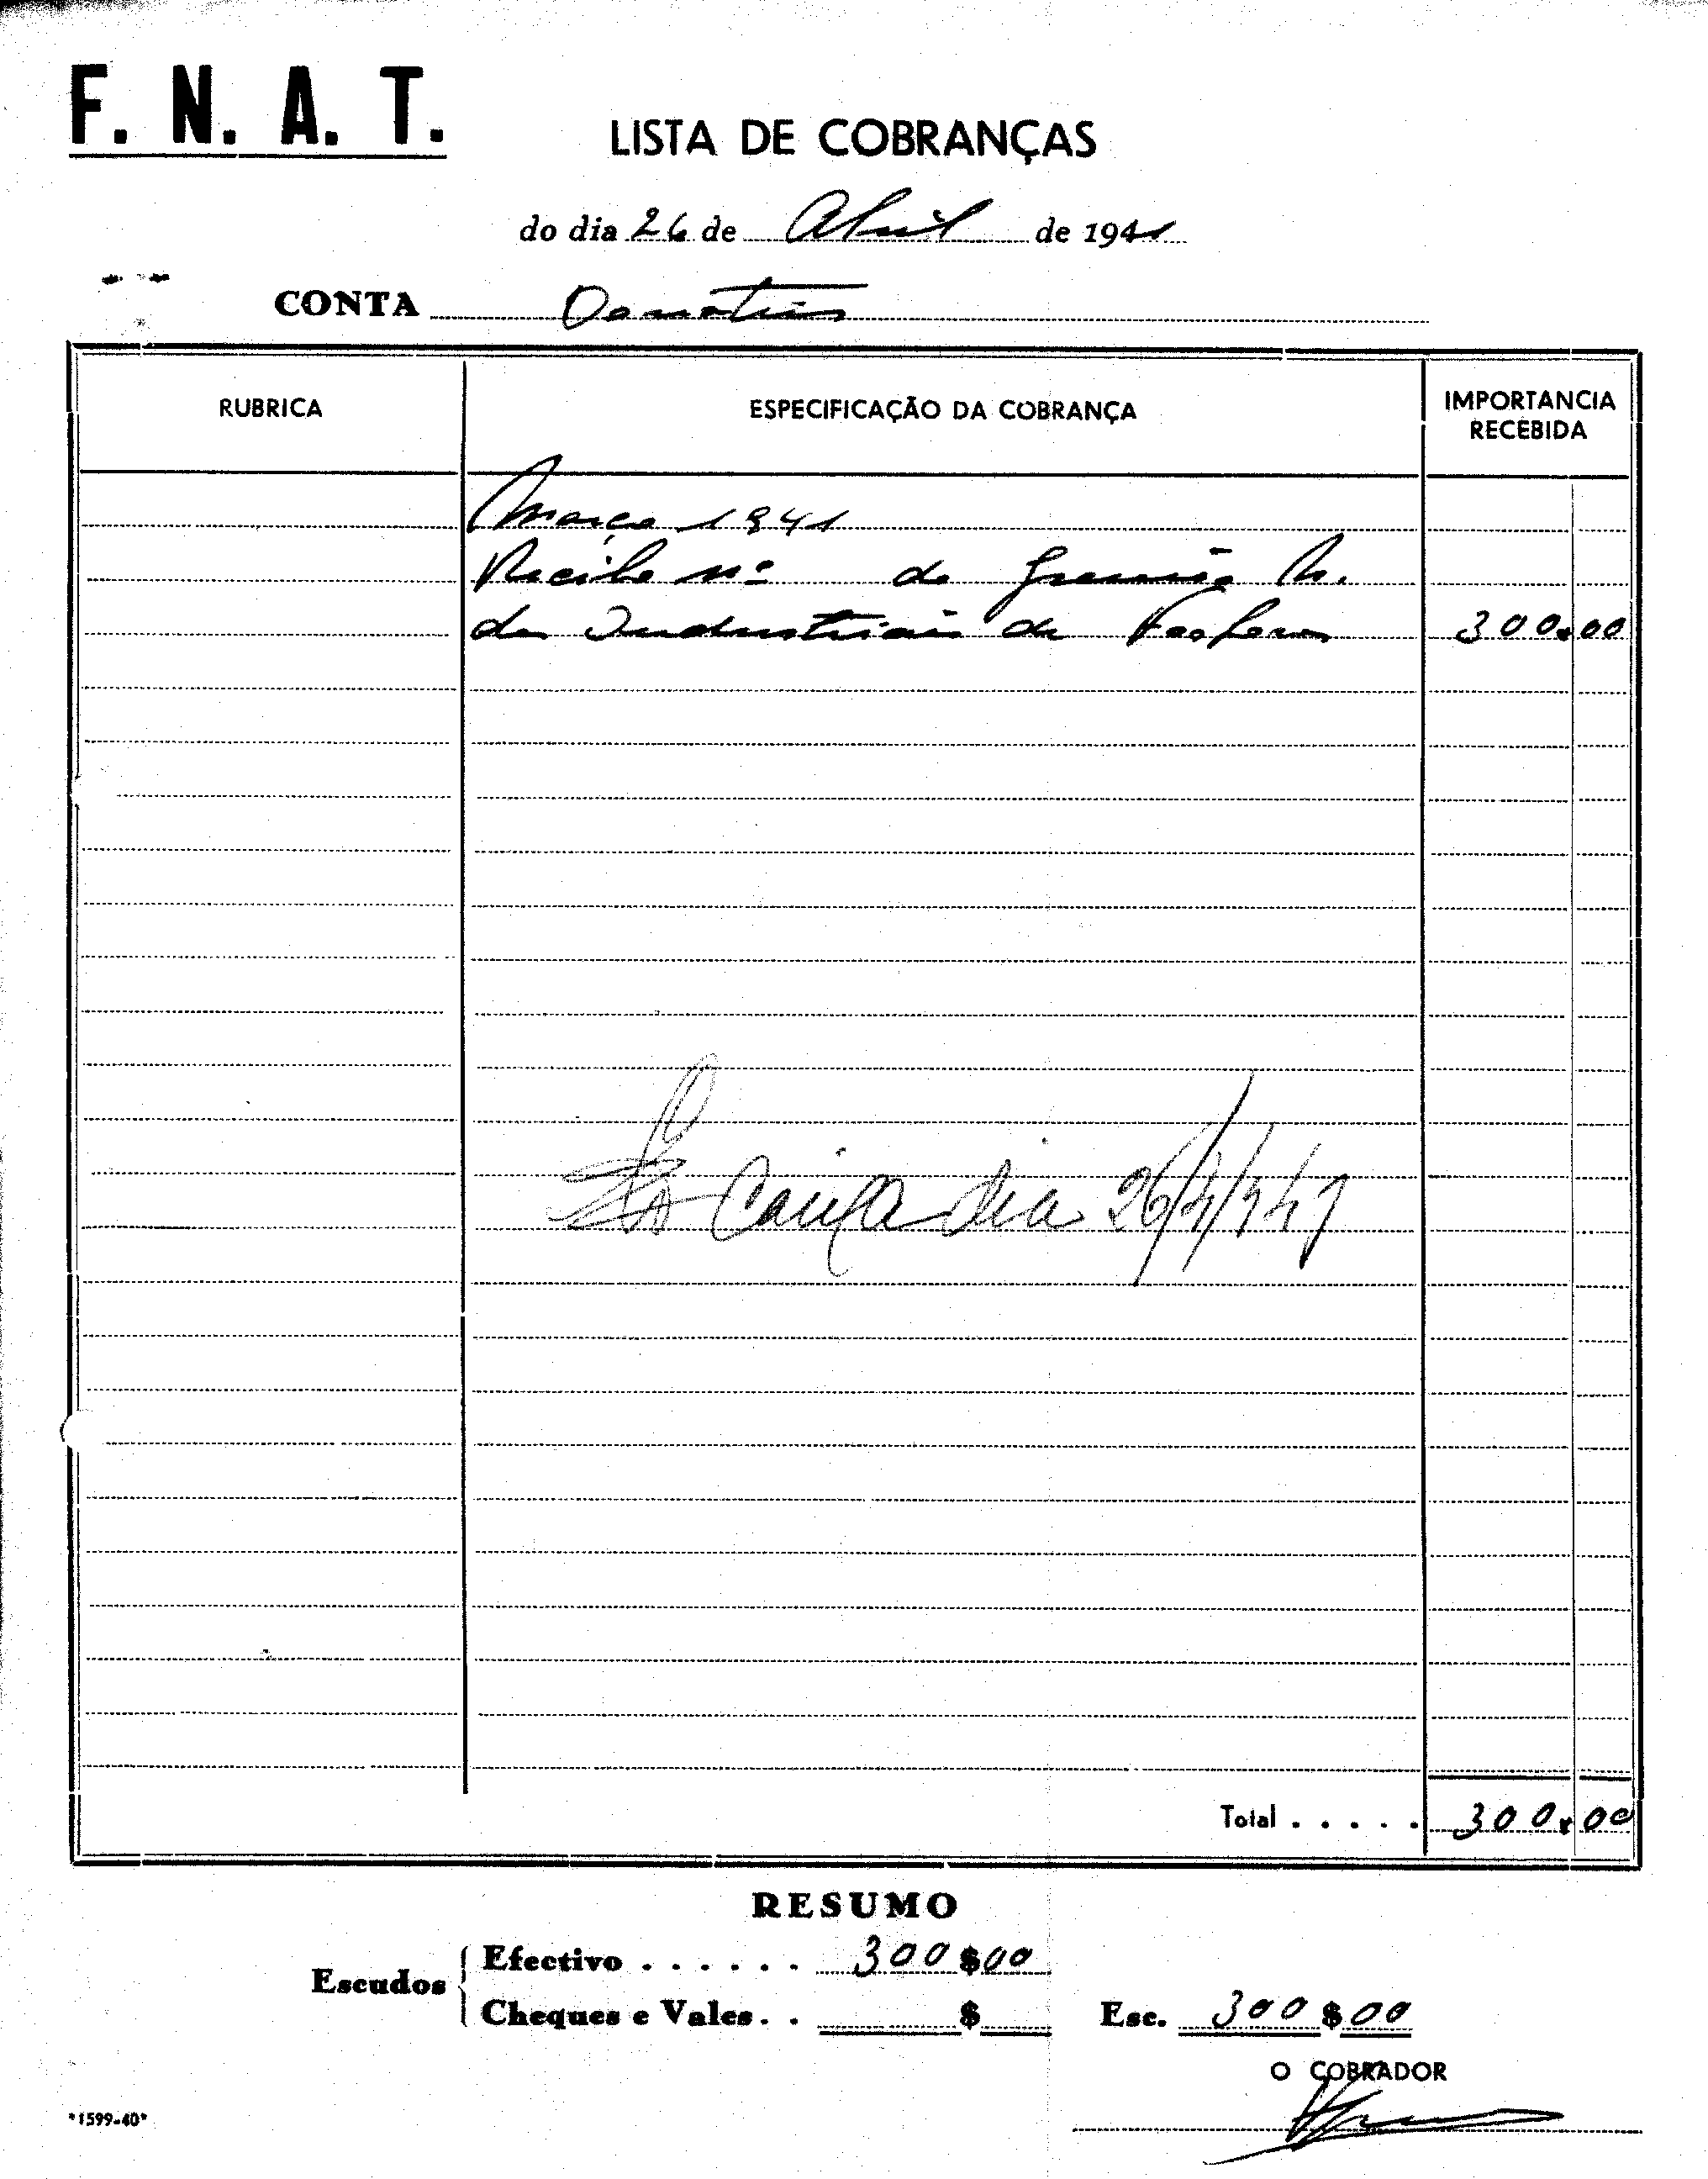 F. N. A. T.
LISTA DE COBRANÇAS
do dia 26 de Abril de 1941
CONTA Donativos
RUBRICA
ESPECIFICAÇÃO DA COBRANÇA
IMPORTANCIA RECEBIDA
Março 1941
Recibo nº do Gremio N.
dos Industriais de Fosforos 300$00
Caixa dia 26/4/941
Total . . . . . 300$00
RESUMO
Escudos
Efectivo . . . . . . 300$00
Cheques e Vales . . $
Esc. 300$00
O COBRADOR
*1599-40*